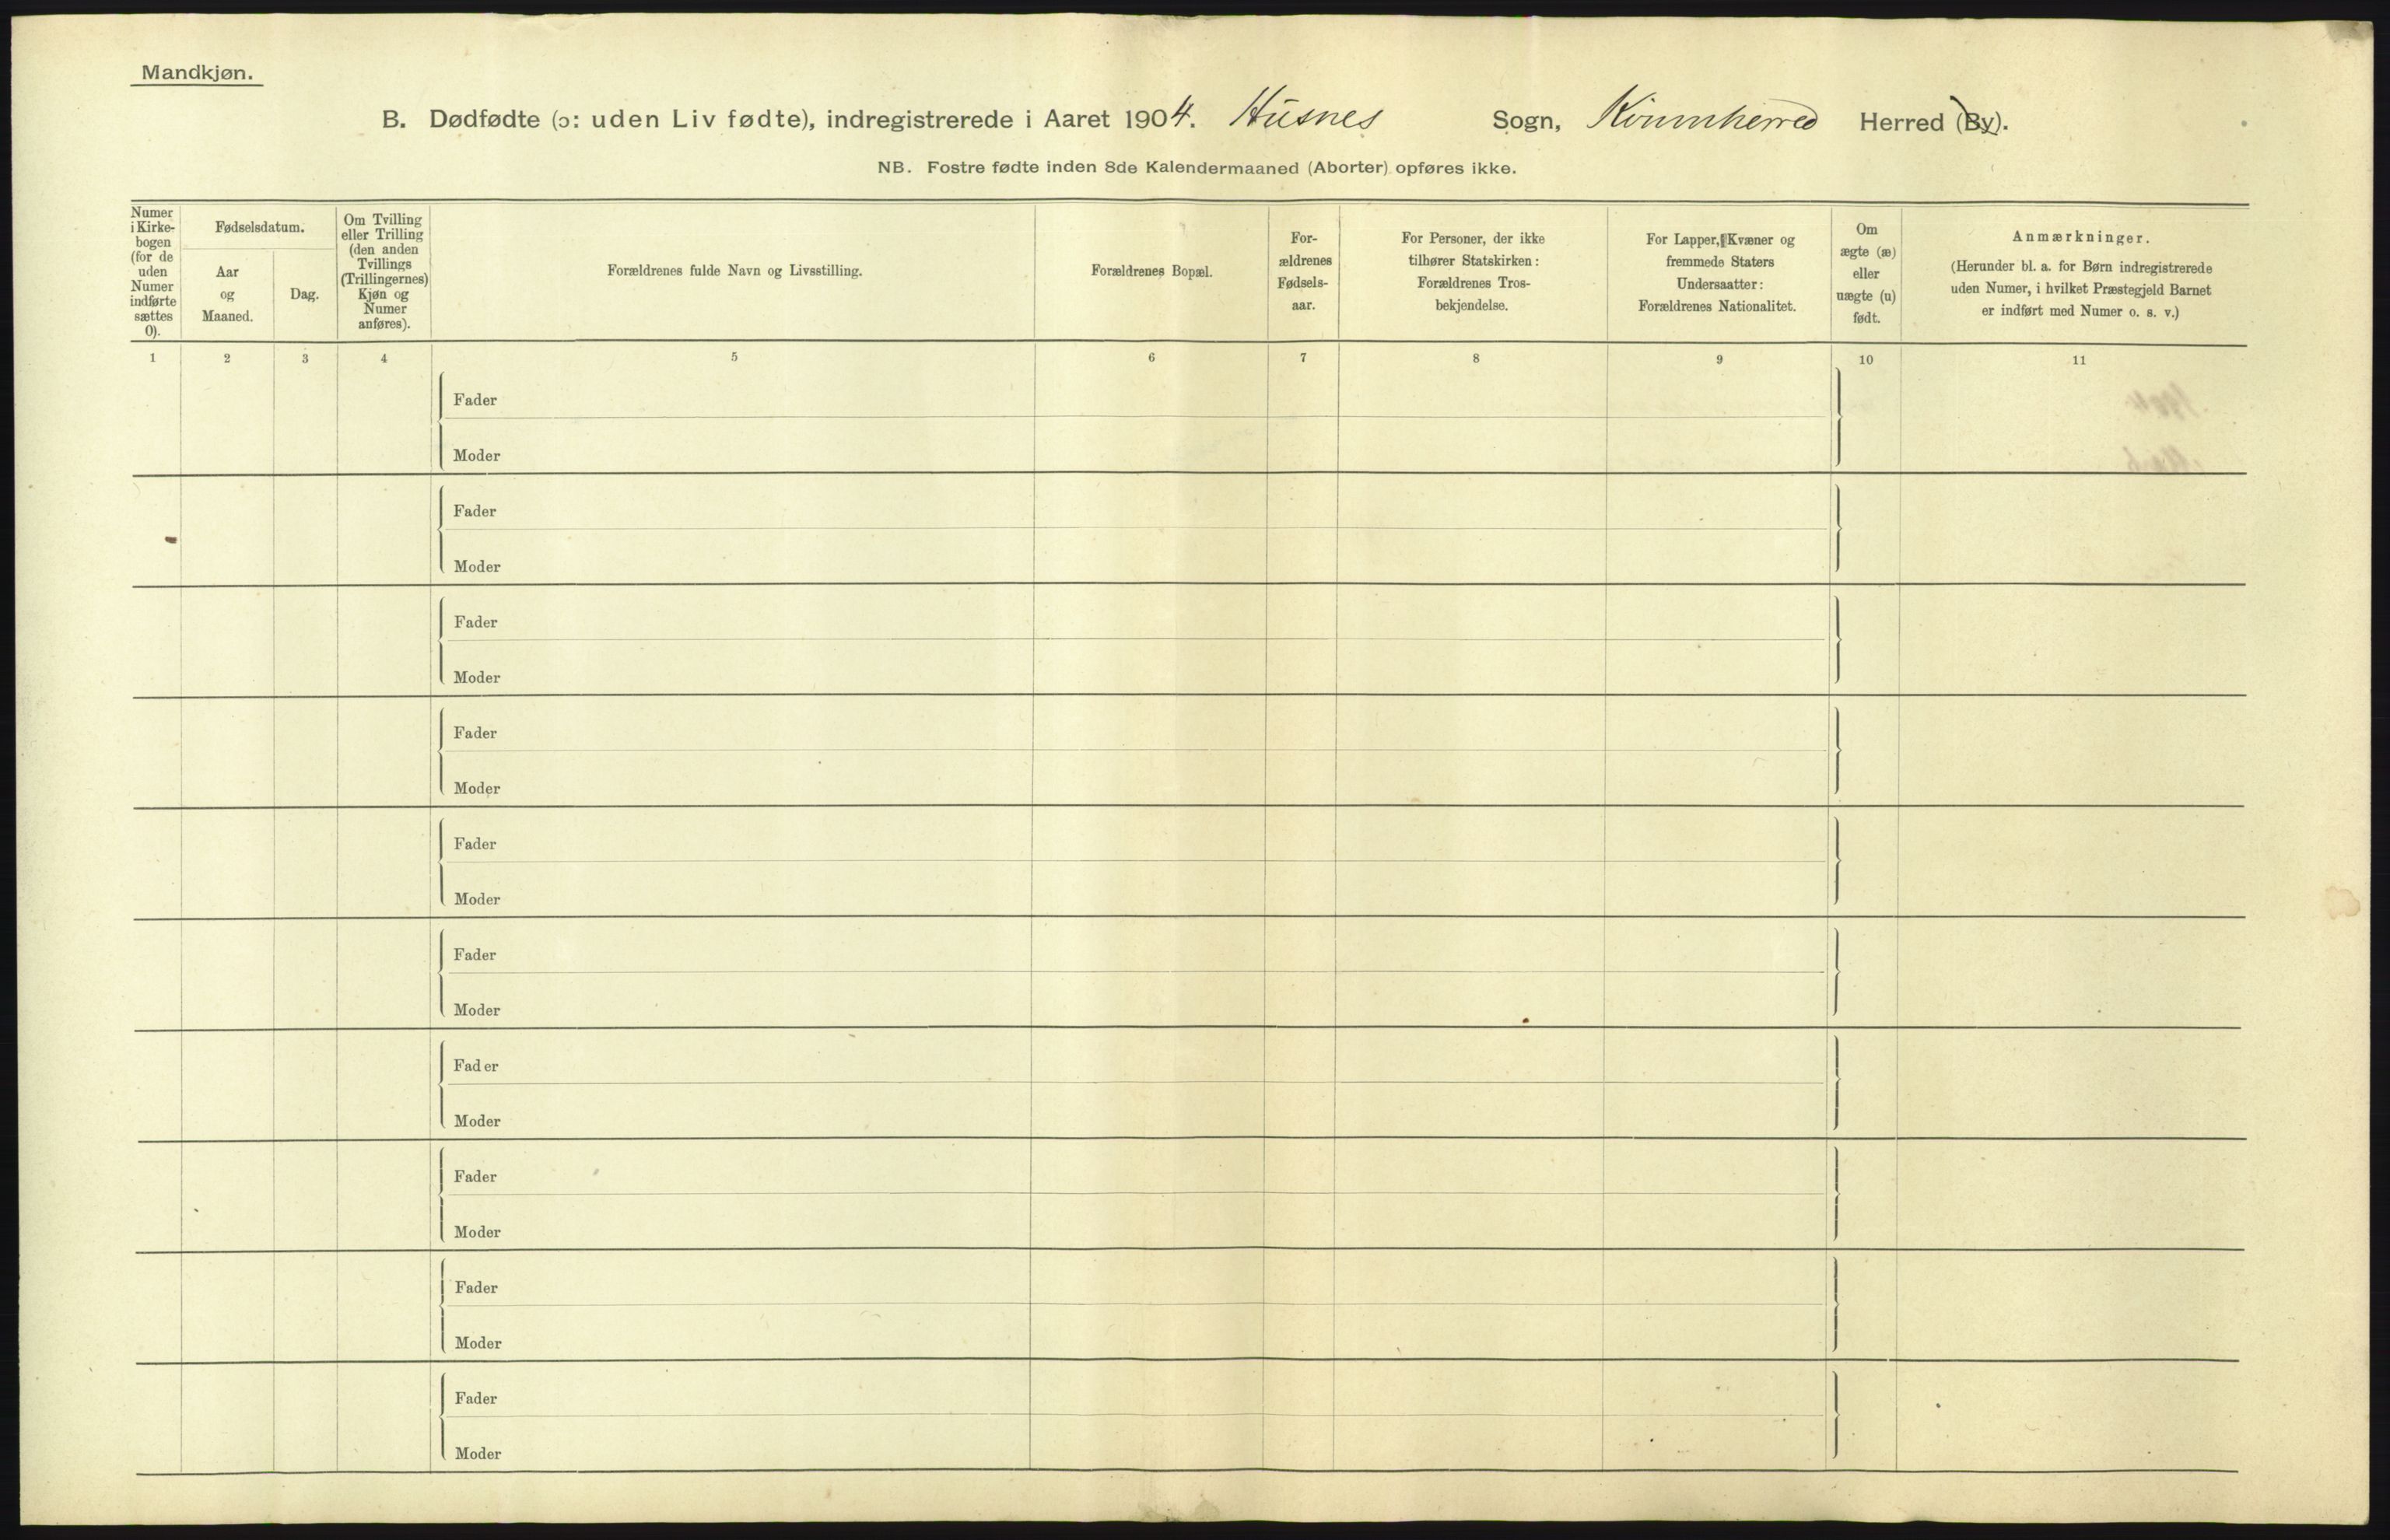 Mandkjøn.
B. Dødfødte (ɔ: uden Liv fødte), indregistrerede i Aaret 1904. Husnes Sogn, Kvinnherred Herred (By).
NB. Fostre fødte inden 8de Kalendermaaned (Aborter) opføres ikke.
Numer
i Kirke-
bogen
(for de
uden
Numer
indførte
sættes
0).
Fødselsdatum.
Aar
og
Maaned.
Dag.
Om Tvilling
eller Trilling
(den anden
Tvillings
(Trillingernes)
Kjøn og
Numer
anføres).
Forældrenes fulde Navn og Livsstilling.
Forældrenes Bopæl.
For-
ældrenes
Fødsels-
aar.
For Personer, der ikke
tilhører Statskirken:
Forældrenes Tros-
bekjendelse.
For Lapper, Kvæner og
fremmede Staters
Undersaatter:
Forældrenes Nationalitet.
Om
ægte (æ)
eller
uægte (u)
født.
Anmærkninger.
(Herunder bl. a. for Børn indregistrerede
uden Numer, i hvilket Præstegjeld Barnet
er indført med Numer o. s. v.)
1 2 3 4 5 6 7 8 9 10 11
Fader
Moder
Fader
Moder
Fader
Moder
Fader
Moder
Fader
Moder
Fader
Moder
Fader
Moder
Fader
Moder
Fader
Moder
Fader
Moder